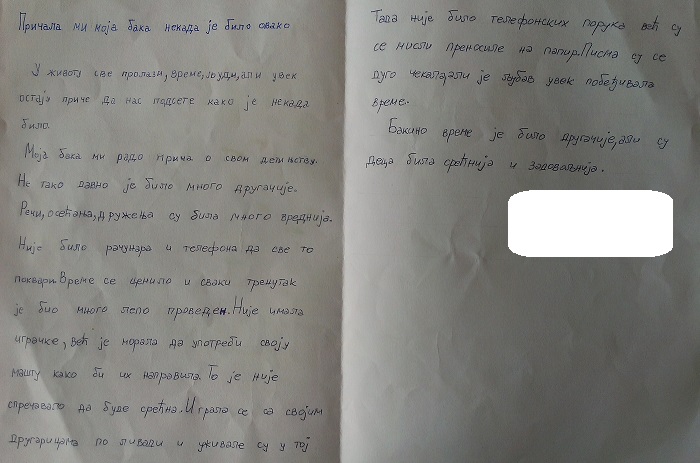 Причала ми моја бака некада је било овако
У животу све пролази, време, људи, али увек
остају приче да нас подсете како је некада
било.
Моја бака ми радо прича о свом детињству.
Не тако давно је било много другачије.
Речи, осећања, дружења су била много вреднија.
Није било рачунара и телефона да све то
поквари. Време се ценило и сваки тренутак
је био много лепо проведен. Није имала
играчке, већ је морала да употреби своју
машту како би их направила. То је није
спречавало да буде срећна. Играла се са својим
другарицама по ливади и уживале су у тој
Тада није било телефонских порука већ су
се мисли преносиле на папир. Писма су се
дуго чекала, али је љубав увек побеђивала
време.
Бакино време је било другачије, али су
деца била срећнија и задовољнија.